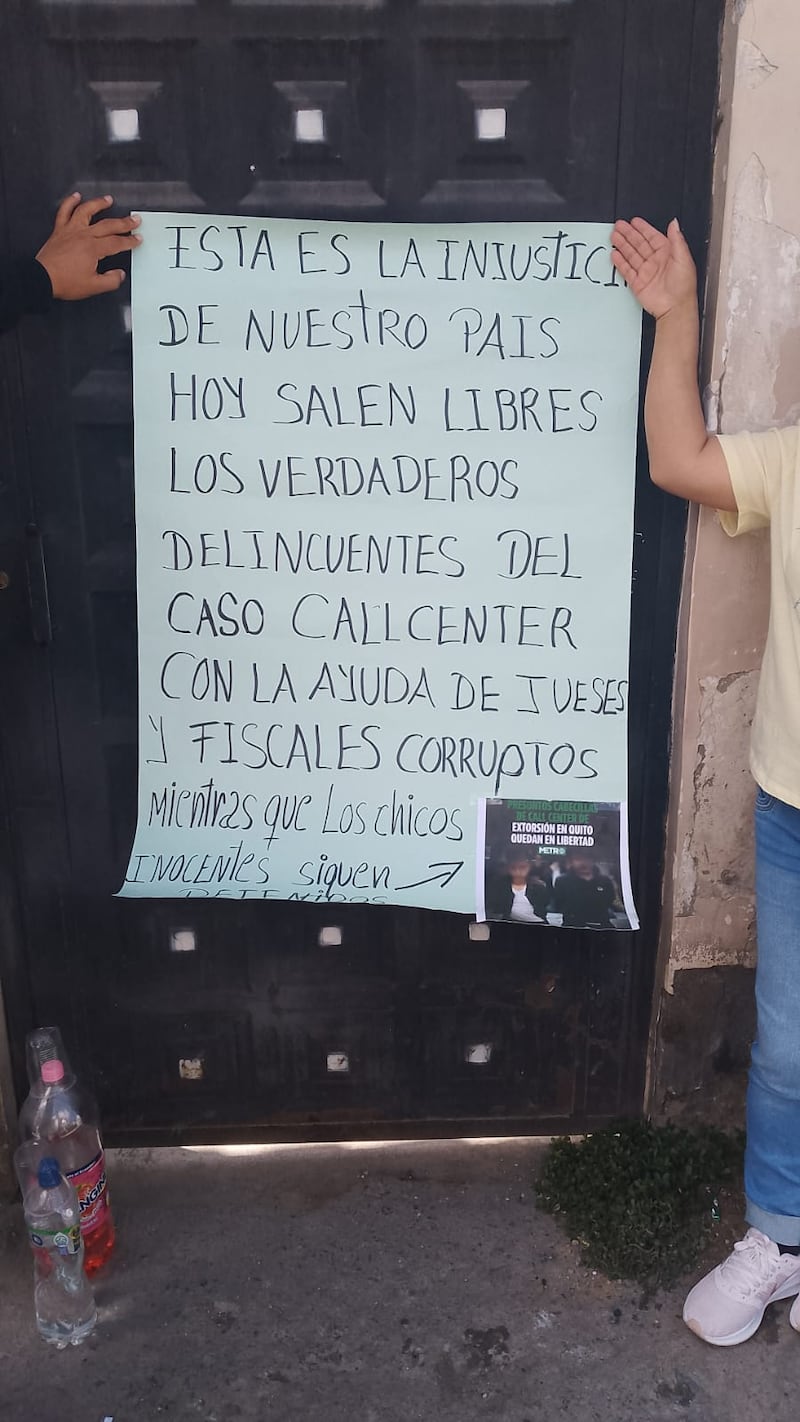 ESTA ES LA INJUSTICI
DE NUESTRO PAIS
HOY SALEN LIBRES
LOS VERDADEROS
DELINCUENTES DEL
CASO CALLCENTER
CON LA AYUDA DE JUESES
Y FISCALES CORRUPTOS
Mientras que Los chicos
INOCENTES siguen
DETENIDOS
PRESUNTOS CABECILLAS
DE CALL CENTER DE
EXTORSIÓN EN QUITO
QUEDAN EN LIBERTAD
METRO